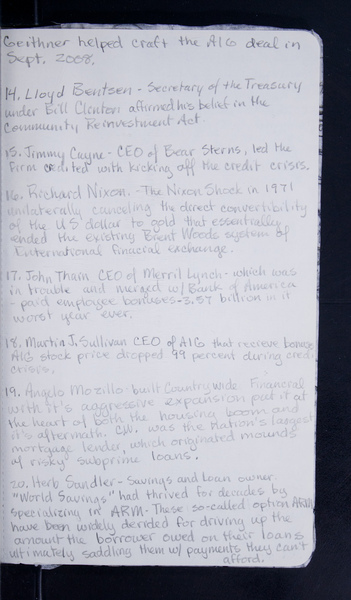 Geithner helped craft the AIG deal in
Sept. 2008.
14. Lloyd Bentsen - Secretary of the Treasury
under Bill Clinton affirmed his belief in the
Community Reinvestment Act.
15. Jimmy Cayne - CEO of Bear Sterns, led the
firm credited with kicking off the credit crisis.
16. Richard Nixon. - The Nixon Shock in 1971
unilaterally canceling the direct convertibility
of the US dollar to gold that essentially
ended the existing Brent Woods system of
International financial exchange.
17. John Thain CEO of Merril Lynch - which was
in trouble and merged w/ Bank of America
- paid employee bonuses - 3.57 billion in it
worst year ever.
18. Martin J. Sullivan CEO of AIG that recieve bonus
AIG stock price dropped 99 percent during credi
crisis.
19. Angelo Mozillo - built Countrywide Financial
with it's aggressive expansion put it at
the heart of both the housing boom and
it's aftermath. C.W. was the Nation's largest
mortgage lender, which originated mounds
of risky subprime loans.
20. Herb Sandler - Savings and Loan owner.
"World Savings" had thrived for decades by
specializing in ARM - These so-called option ARM
have been widely derided for driving up the
amount the borrower owed on their loans
ultimately saddling them w/ payments they can't
afford.